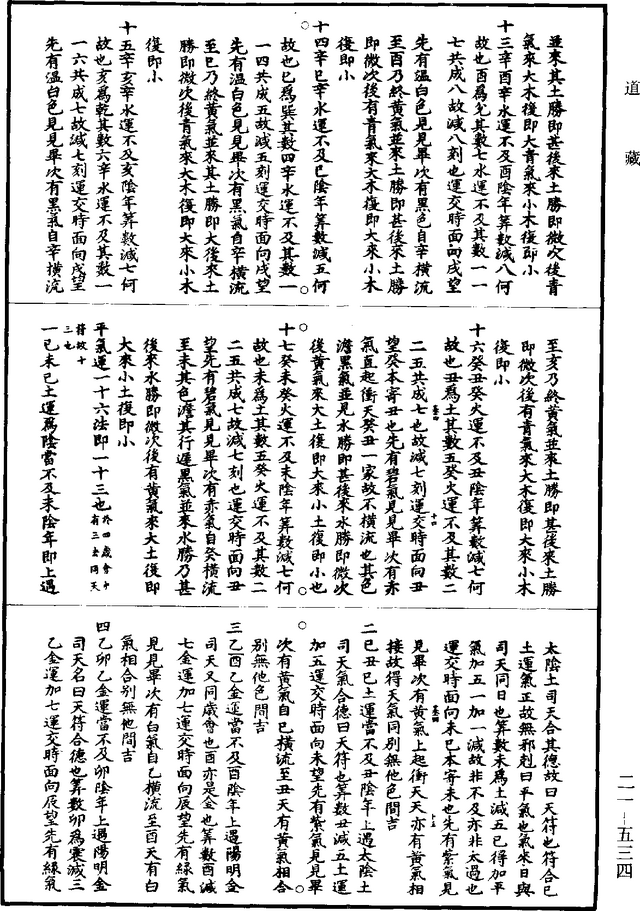 道藏
並來其土勝即甚後來土勝即微次後青
氣來大木復即大青氣來小木復即小
十三辛酉辛水運不及酉陰年筭數減八何
故也酉為兌其數七水運不及其數一一
七共成八故減八刻也運交時面向戌望
先有溫白色見見畢次有黑色自辛橫流
至酉乃終黃氣並來其土勝即甚後來土勝
即微次後有青氣來大木復即大來小木
復即小
十四辛巳辛水運不及巳陰年筭數減五何
故也巳為巽其數四辛水運不及其數一
一四共成五故減五刻運交時面向戌望
先有溫白色見見畢次有黑氣自辛橫流
至巳乃終黃氣並來其土勝即大後來土
勝即微次後青氣來大木復即大來小木
復即小
十五辛亥辛水運不及亥陰年筭數減七何
故也亥為乾其數六辛水運不及其數一
一六共成七故減七刻運交時面向戌望
先有溫白色見見畢次有黑氣自辛橫流
至亥乃終黃氣並來土勝即甚後來土勝
即微次後有青氣來大木復即大來小木
復即小
十六癸丑癸火運不及丑陰年筭數減七何
故也丑為土其數五癸火運不及其數二
二五共成七也故減七刻運交時面向丑
望癸本寄丑也先有碧氣見見畢次有赤
氣直起衝天癸丑一家故不橫流也其色
澹黑氣並見水勝即甚後來水勝即微次
後黃氣來大土復即大來小土復即小也
十七癸未癸火運不及未陰年筭數減七何
故也未為土其數五癸火運不及其數二
二五共成七故減七刻也運交時面向丑
望先有碧氣見見畢次有赤氣自癸橫流
至未其色澹其行遲黑氣並來水勝乃甚
後來水勝即微次後有黃氣來大土復即
大來小土復即小
平氣運一十六法即一十三也
一己未己土運為陰當不及未陰年即上遇
太陰土司天合其德故曰天符也符合己
土運氣正故無邪剋曰平氣也氣來日與
司天同日也筭數未為土減五已得加平
氣加五一加一減故非不及亦非太過也
運交時面向未己本寄未也先有紫氣見
見畢次有黃氣上起衝天天亦有黃氣相
接故得天氣同別無他色間吉
二己丑己土運當不及丑陰年上遇太陰土
司天氣合德曰天符也筭數丑減五土運
加五運交時面向未望先有紫氣見見畢
次有黃氣自己橫流至丑天有黃氣相合
別無他色間吉
三乙酉乙金運當不及酉陰年上遇陽明金
司天又同歲會也酉亦是金也筭數酉減
七金運加七運交時面向辰望先有綠氣
見見畢次有白氣自乙橫流至酉天有白
氣相合別無他間吉
四乙卯乙金運當不及卯陰年上遇陽明金
司天名曰天符合德也筭數卯為震減三
乙金運加七運交時面向辰望先有綠氣
二一－五三四